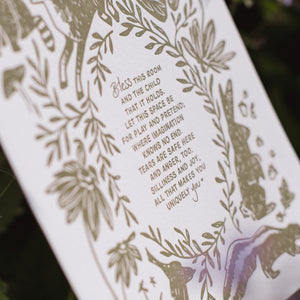 Bless THIS ROOM
AND THE CHILD
THAT IT HOLDS.
LET THIS SPACE BE
FOR PLAY AND PRETEND;
WHERE IMAGINATION
KNOWS NO END.
TEARS ARE SAFE HERE
AND ANGER, TOO.
SILLINESS AND JOY,
ALL THAT MAKES YOU
UNIQUELY you